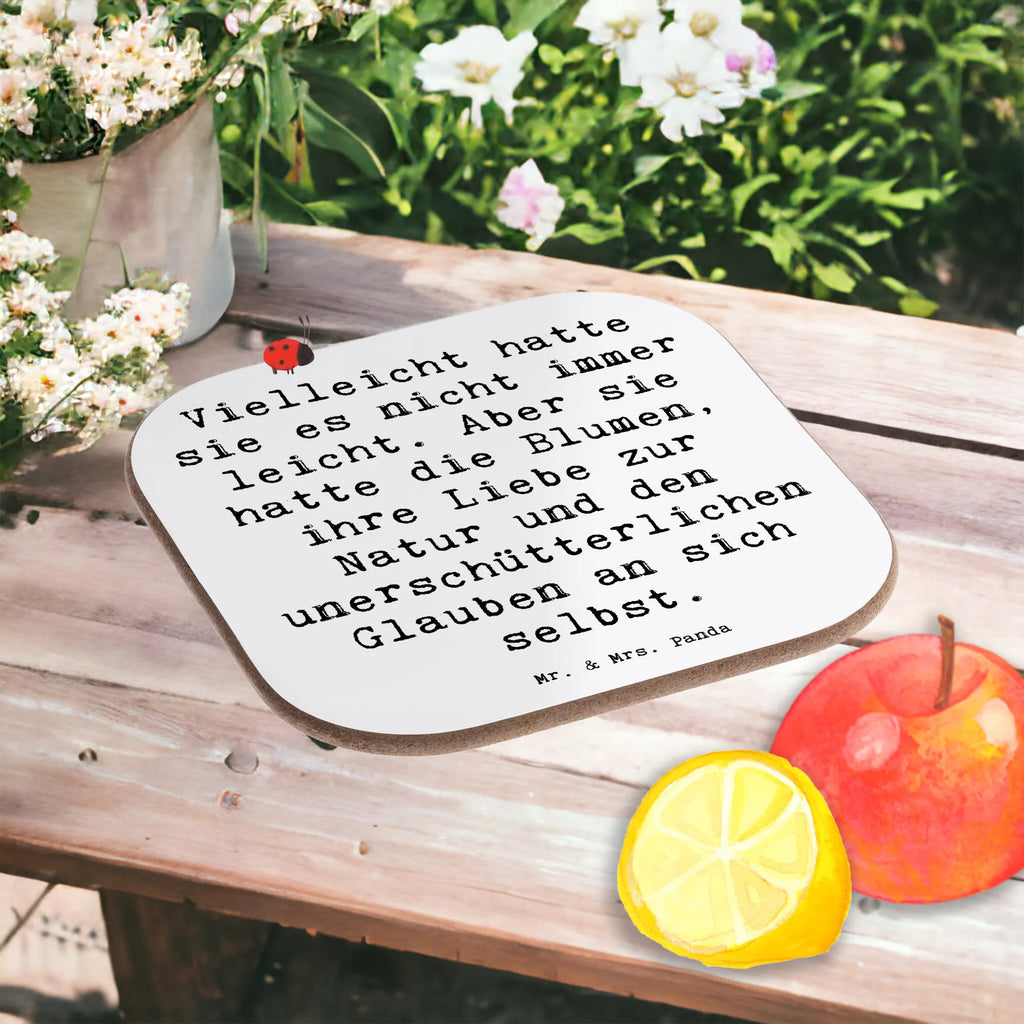 Vielleicht hatte
sie es nicht immer
leicht. Aber sie
hatte die Blumen,
ihre Liebe zur
Natur und den
unerschütterlichen
Glauben an sich
selbst.
Mr. & Mrs. Panda